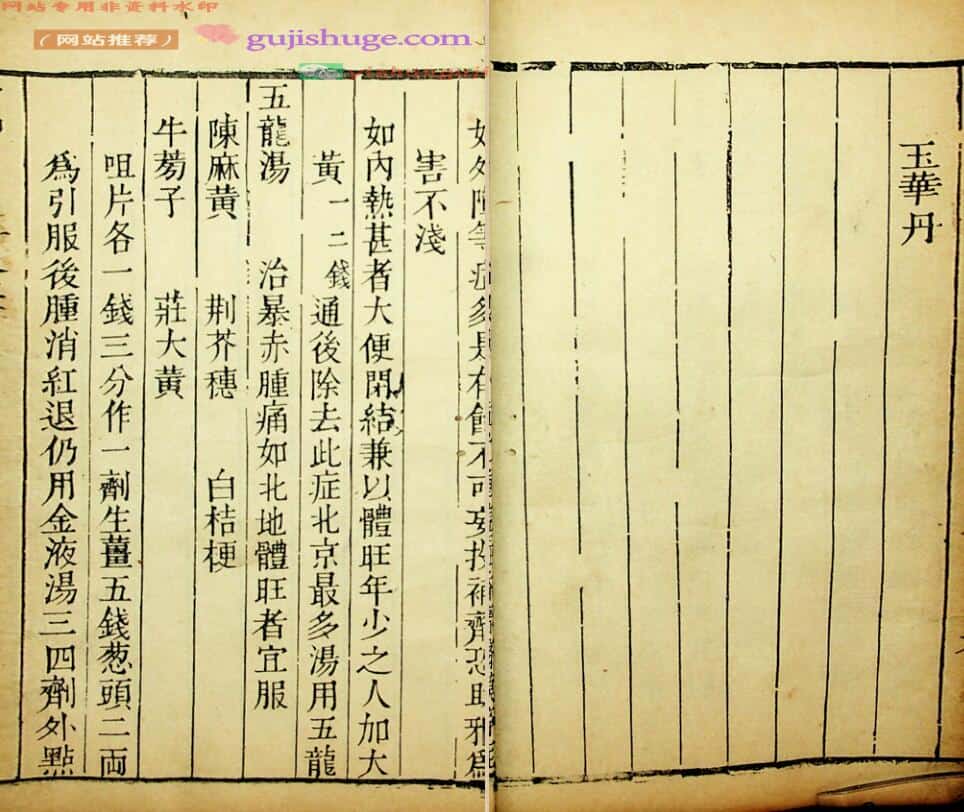 网站专用非资料水印
（网站推荐）
gujishuge.com
玉華丹
如外障等症多是有餘不可妄投補劑恐助邪爲
害不淺
如內熱甚者大便閉結兼以體旺年少之人加大
黃一二錢通後除去此症北京最多湯用五龍
五龍湯 治暴赤腫痛如北地體旺者宜服
陳麻黃 荆芥穗 白桔梗
牛蒡子 莊大黃
咀片各一錢三分作一劑生薑五錢葱頭二両
爲引服後腫消紅退仍用金液湯三四劑外點